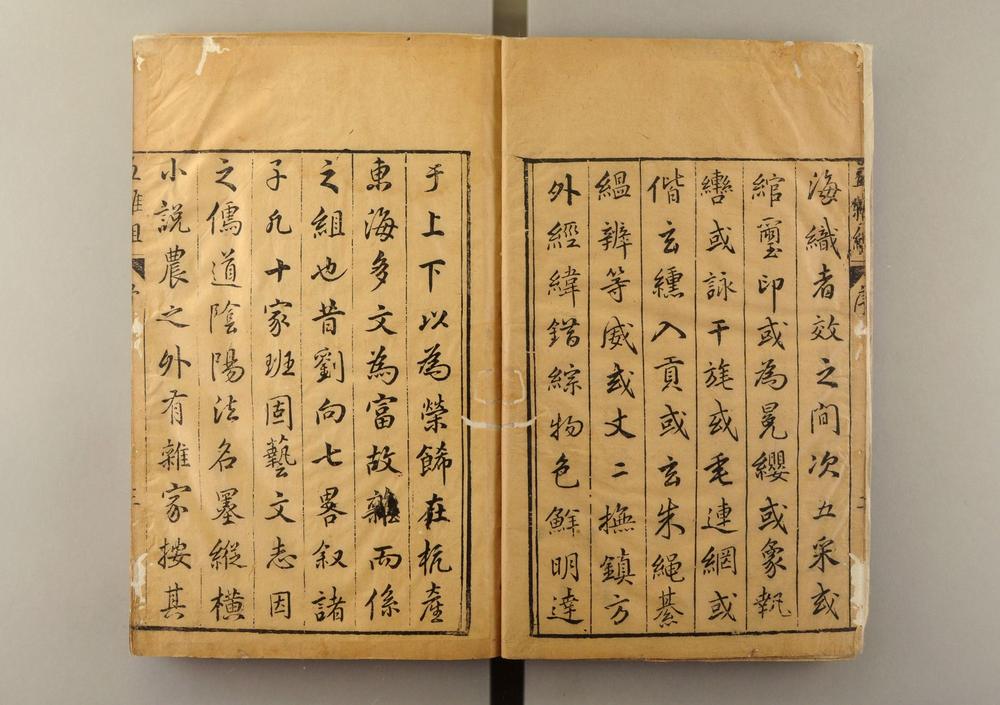 五雜組
序
二
海織者效之間次五采或
綰璽印或為冕纓或象執
轡或詠干旄或垂連網或
偕玄纁入貢或玄朱繩綦
縕辨等威或丈二撫鎮方
外經緯錯綜物色鮮明達
于上下以為榮餙在杭產
東海多文為富故雜而係
之組也昔劉向七畧叙諸
子凡十家班固藝文志因
之儒道陰陽法名墨縱橫
小說農之外有雜家按其
五雜組